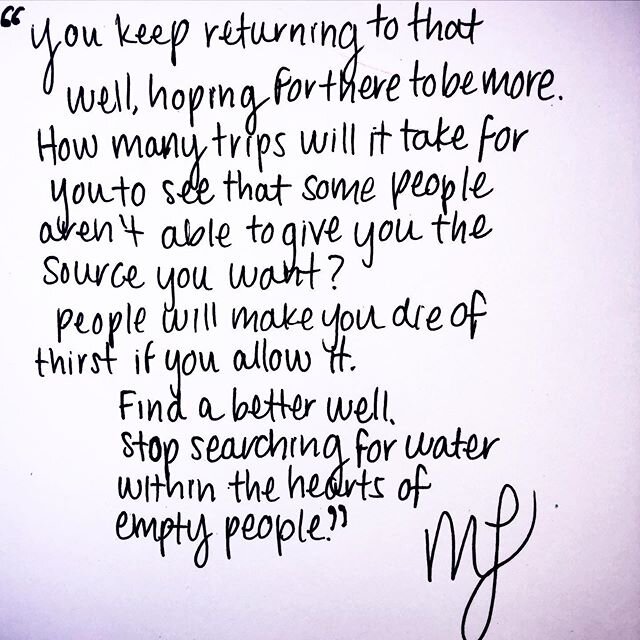 “you keep returning to that
well, hoping for there to be more.
How many trips will it take for
you to see that some people
aren't able to give you the
source you want?
people will make you die of
thirst if you allow it.
Find a better well.
Stop searching for water
within the hearts of
empty people.”